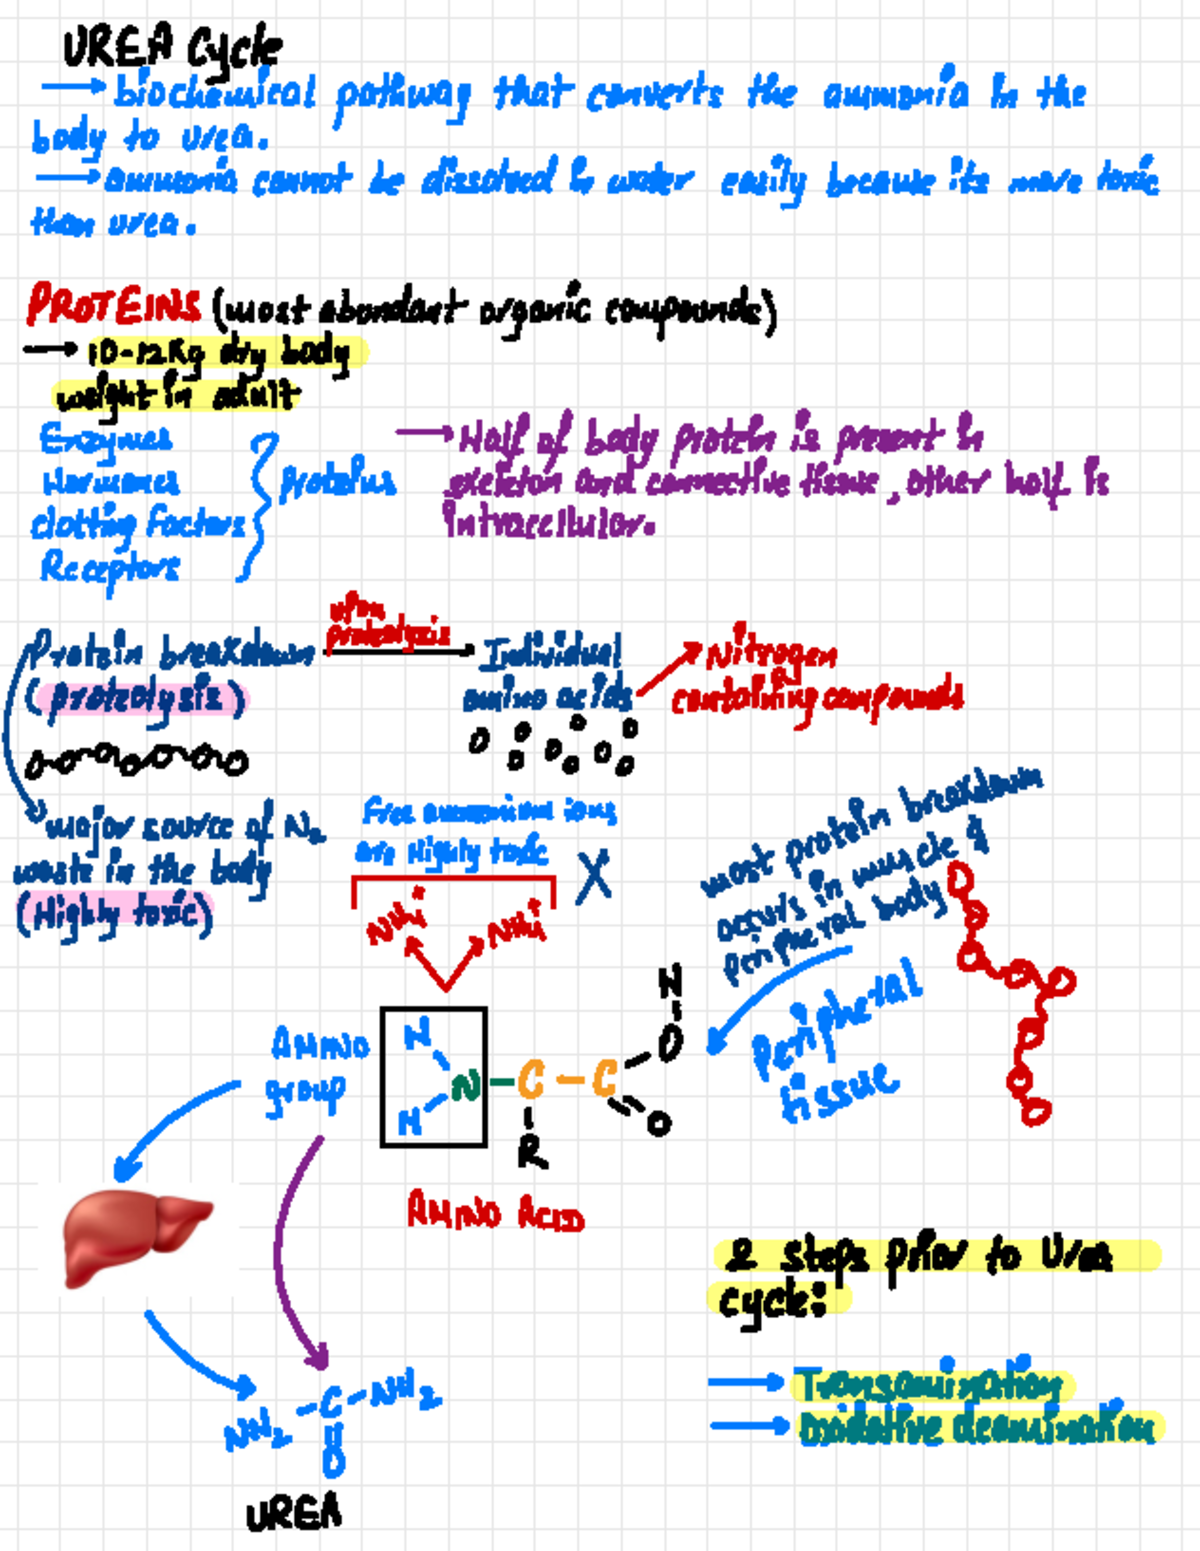 UREA Cycle
→ biochemical pathway that converts the ammonia in the
body to urea.
→ ammonia cannot be dissolved in water easily because its more toxic
than urea.
PROTEINS (most abundant organic compounds)
→ 10-12Kg dry body
weight in adult
Enzymes
Hormones
clotting factors
Receptors
Proteins
→ Half of body protein is present in
skeleton and connective tissue, other half is
intracellular.
Protein breakdown
(proteolysis)
upon
proteolysis
Individual
amino acids
Nitrogen
containing compounds
major source of N2
waste in the body
(Highly toxic)
Free ammonium ions
are Highly toxic
X
NH4+ NH4+
most protein breakdown
occurs in muscle &
peripheral body
Peripheral
tissue
Amino
group
H
N - C - C
H
O - H
O
R
AMINO ACID
2 steps prior to Urea
cycle:
→ Transamination
→ Oxidative deamination
NH2 - C - NH2
O
UREA